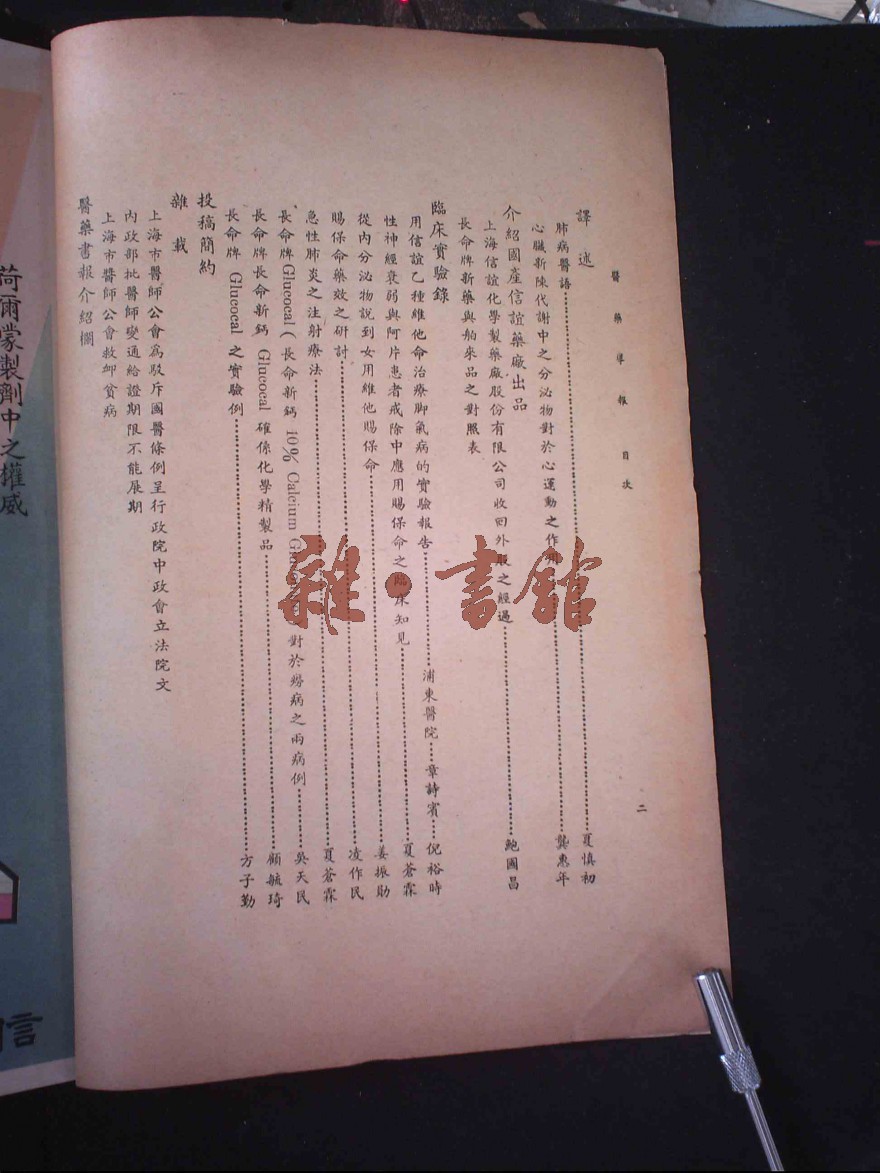 醫藥導報 目次
二
譯述
肺病醫語……夏慎初
心臟新陳代謝中之分泌物對於心運動之作用……龔惠年
介紹國產信誼藥廠出品
上海信誼化學製藥廠股份有限公司收回外股之經過……鮑國昌
長命牌新藥與舶來品之對照表
臨床實驗錄
用信誼乙種維他命治療脚氣病的實驗報告……浦東醫院…章詩賓…倪裕時
性神經衰弱與阿片患者戒除中應用賜保命之臨床知見……夏蒼霖
從內分泌物說到女用維他賜保命……姜振勛
賜保命藥效之研討……凌作民
急性肺炎之注射療法……夏蒼霖
長命牌Glucocal(長命新鈣 10% Calcium 對於癆病之兩病例……吳天民
長命牌長命新鈣 Glucocal 確係化學精製品……顧毓琦
長命牌 Glucocal 之實驗例……方子勤
投稿簡約
雜載
上海市醫師公會為駁斥國醫條例呈行政院中政會立法院文
內政部批醫師變通給證期限不能展期
上海市醫師公會救卹貧病
醫藥書報介紹欄
荷爾蒙製劑中之權威
信
雜·書館